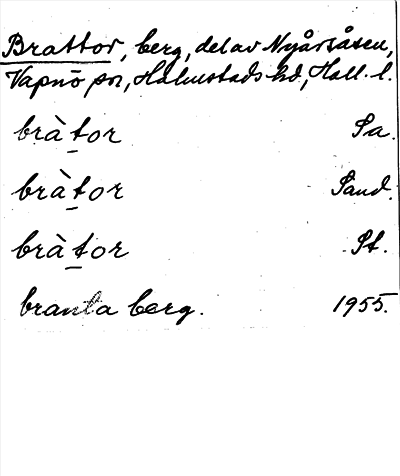 Brattor, berg, del av Nyårsåsen,
Vapnö sn, Halmstads hd, Hall. l.
bràt̠or Sa.
bràt̠or Sand.
bràt̠or St.
branta berg. 1955.